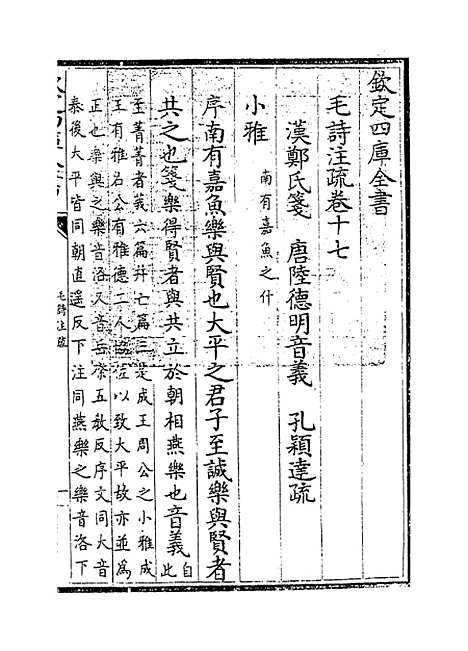 欽定四庫全書
毛詩注疏卷十七
漢鄭氏箋　唐陸德明音義　孔穎達疏
小雅
南有嘉魚之什
序南有嘉魚樂與賢也大平之君子至誠樂與賢者
共之也箋樂得賢者與共立於朝相燕樂也音義
自此
至菁菁者莪六篇并亡篇三是成王周公之小雅成
王有雅名公有雅德二人協佐以致大平故亦並為
正也樂與之樂音洛又音岳徐五教反序文同大音
泰後大平皆同朝直遥反下注同燕樂之樂音洛下
毛詩注疏
一